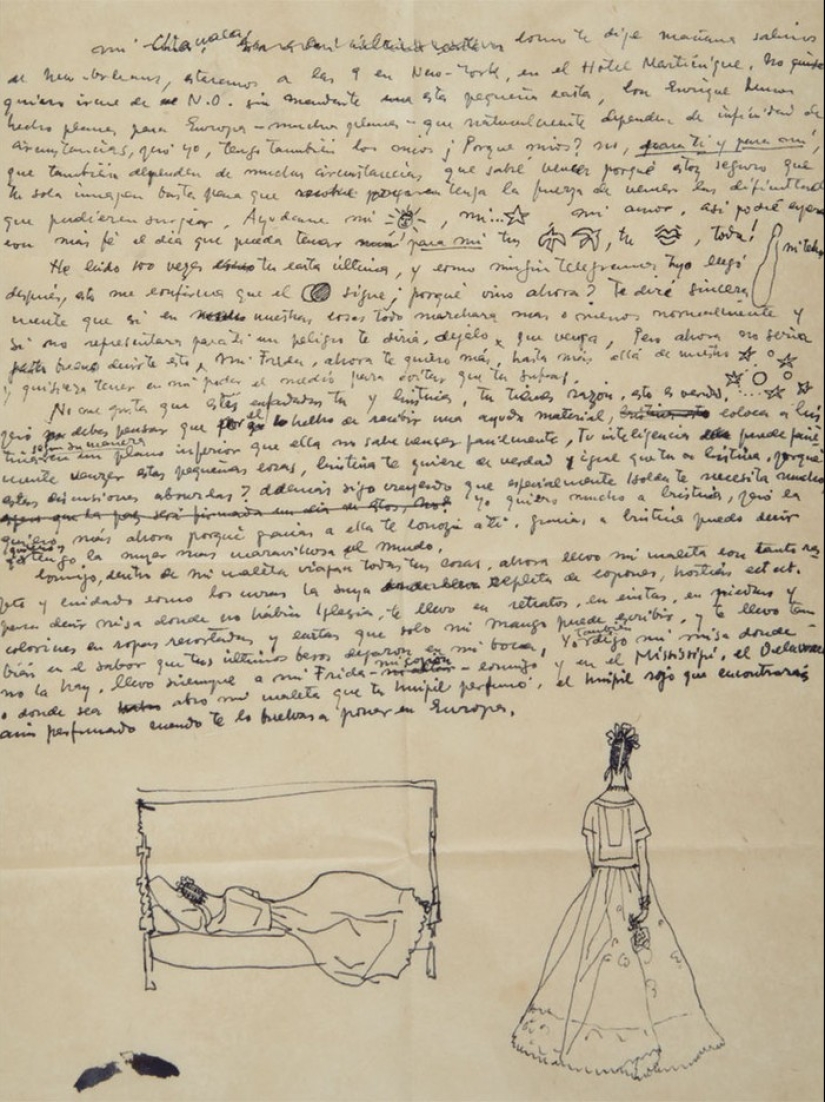 mi Chiquita, como te dije mañana salimos
de New-Orleans, estaremos a las 9 en New-York, en el Hotel Martinique. No
quiero irme de N.O. sin mandarte una esta pequeña carta, con Enrique hemos
hecho planes para Europa – muchos planes – que naturalmente dependen de infinidad de
circunstancias, pero yo, tengo también los míos ¿ Porque míos? no, para ti y para mi,
que también dependen de muchas circunstancias que sabré vencer porqué estoy seguro que
tu sola imagen basta para que tenga la fuerza de vencer las dificultades
que pudieran surgir, Ayudame mi , mi... , mi amor, así podré
con más fé el día que pueda tener para mi tus , tu , toda!
He leido 100 veces tu carta última, y como ningún telegrama tuyo llegó
después, esto me confirma que el sigue, ¿ porqué vino ahora? Te diré sincera
mente que si en nuestras cosas todo marchara mas o menos normalmente y
si no representara para ti un peligro te diría, dejálo que venga, Pero ahora no sería
bueno decirte esto, mi Frida, ahora te quiero más, hasta más allá de
y quisiera tener en mi poder el medio para evitar que tu sufras.
No me gusta que estés enfadadas tu y Cristina, tu tienes razón, esto es verdad,
pero debes pensar que el hecho de recibir una ayuda material, coloca a Cris
tina en un plano inferior que ella no sabe vencer facilmente, tu inteligencia puede facil
a su manera
mente vencer estas pequeñas cosas, Cristina te quiere de verdad y igual que tu a Cristina, porqué
estas discusiones absurdas? además sigo creyendo que especialmente Isolda te necesita mucho
yo quiero mucho a Cristina, pero la
quiero más ahora porqué gracias a ella te conocí a ti. gracias a Cristina puedo decir
tengo la mujer mas maravillosa del mundo.
Conmigo, dentro de mi maleta viajan todas tus cosas, ahora llevo mi maleta con tanto res
peto y cuidado como los curas la suya repleta de copones, hostias ect ect.
para decir misa donde no había Iglesia, te llevo en retratos, en cintas, en piedras y
colorines en ropas recortadas y cartas que solo mi mango puede escribir, y te llevo tam
bién en el sabor que tus últimos besos dejaron en mi boca, Yo también digo mi misa donde
no la hay, llevo siempre a mi Frida – mi copón – conmigo y en el Mississipi, el Delaware
o donde sea abro mi maleta que tu huipil perfumó, el huipil rojo que encontrarás
aún perfumado cuando te lo vuelvas a poner en Europa.